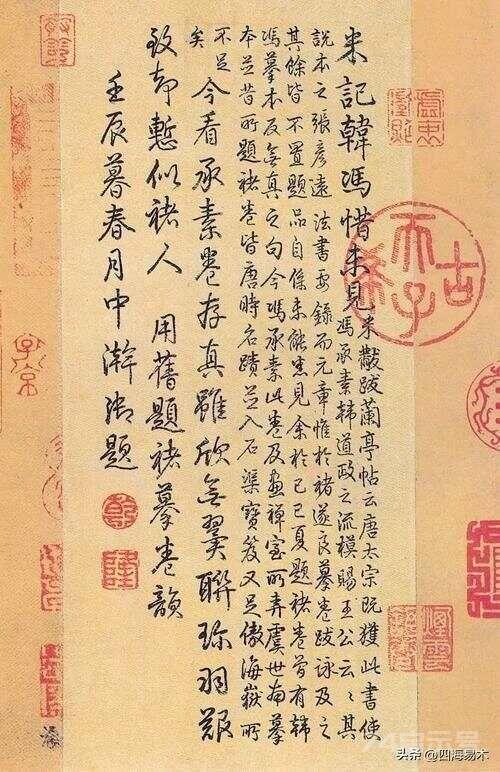 米記韓馮惜未見
米黻跋蘭亭帖云唐太宗既獲此書使
馮承素韓道政之流模賜王公云〻其
說本之張彥遠法書要錄而元章惟於褚遂良摹卷跋詠及之
其餘皆不置題品自係未能悉見余於己巳夏題褚卷曾有韓
馮摹本反無真之句今馮承素此卷及畫禪室所弆虞世南摹
本並昔所題褚卷皆唐時名蹟並入石渠寶笈又足傲海嶽所
不足
矣
今看承素卷存真雖欣無翼聯珎羽艱
致却慙似褚人 用舊題褚摹卷韻
壬辰暮春月中澣御題
古希天子
乾
隆
头条 @四海易木